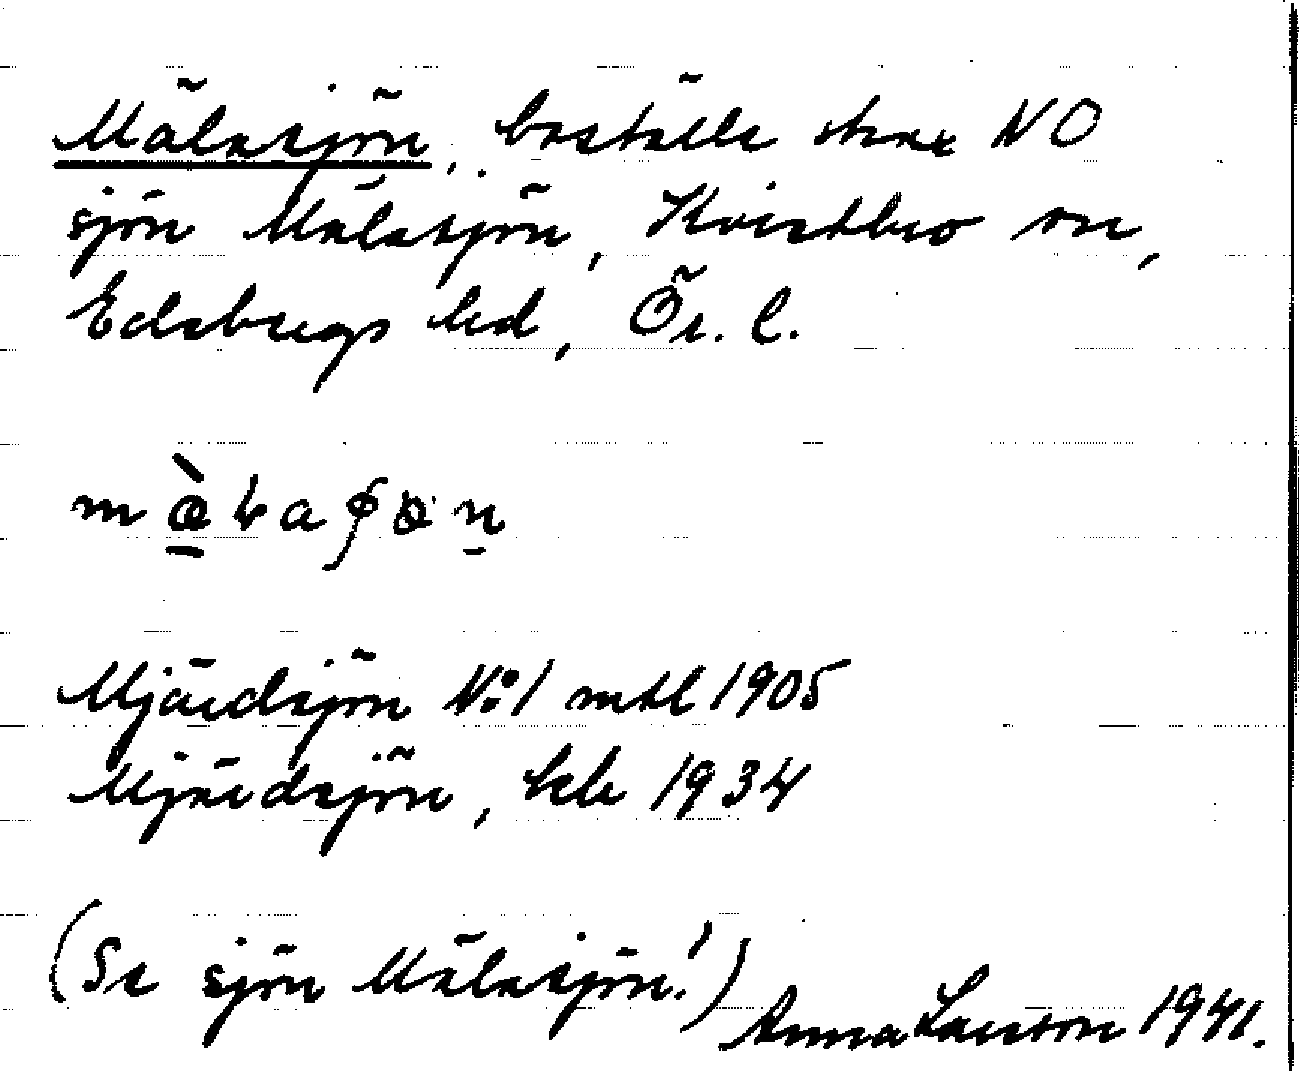 Mälasjön, boställe strax NO
sjön Mälasjön, Kvistbro sn,
Edsbergs hd, Ör. l.
Mjärdsjön No 1 mtl 1905
Mjärdsjön, kb 1934
(Se sjön Mälasjön!)
Anna Larsson 1941.